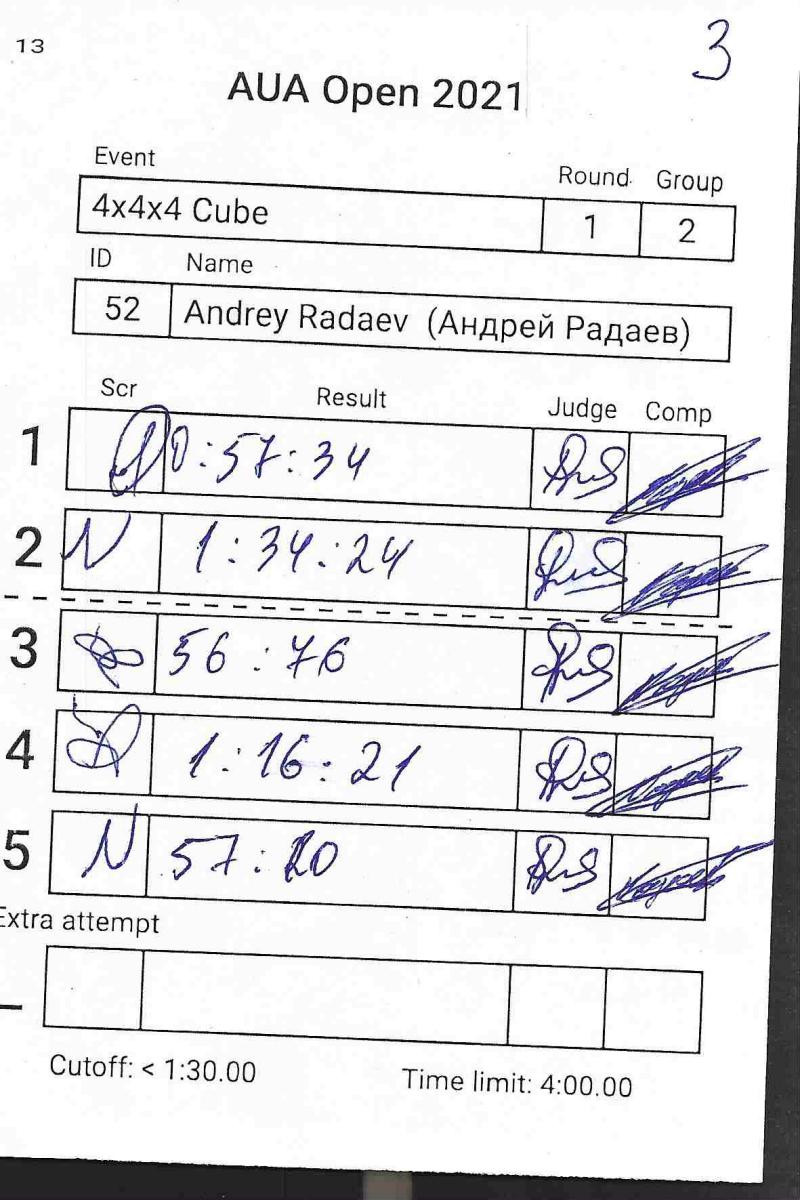 13
3
AUA Open 2021
Event Round Group
4x4x4 Cube 1 2
ID Name
52 Andrey Radaev (Андрей Радаев)
Scr Result Judge Comp
1 0:57:34
2 N 1:34:24
3 56:76
4 1:16:21
5 N 57:
Extra attempt
_
Cutoff: < 1:30.00 Time limit: 4:00.00